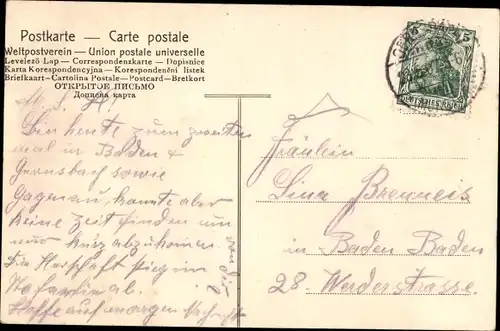 Postkarte — Carte postale
Weltpostverein — Union postale universelle
Levelező Lap — Correspondenzkarte — Dopisnice
Karta Korespondencyjna — Korespondenční listek
Briefkaart - Cartolina Postale - Postcard - Bretkort
ОТКРЫТОЕ ПИСЬМО
Дописна карта
5
DEUTSCHES REICH
M. S. H.
Bin heute zum zweiten
mal in Baden &
Gernsbach sowie
Gagenau, konnte aber
keine Zeit finden um
nur kurz abzukommen.
Die Herschaft stieg in
ab.
Hoffe auf morgen
von dir
Fräulein
Lina Brenneis
in Baden Baden
28. Werderstrasse.